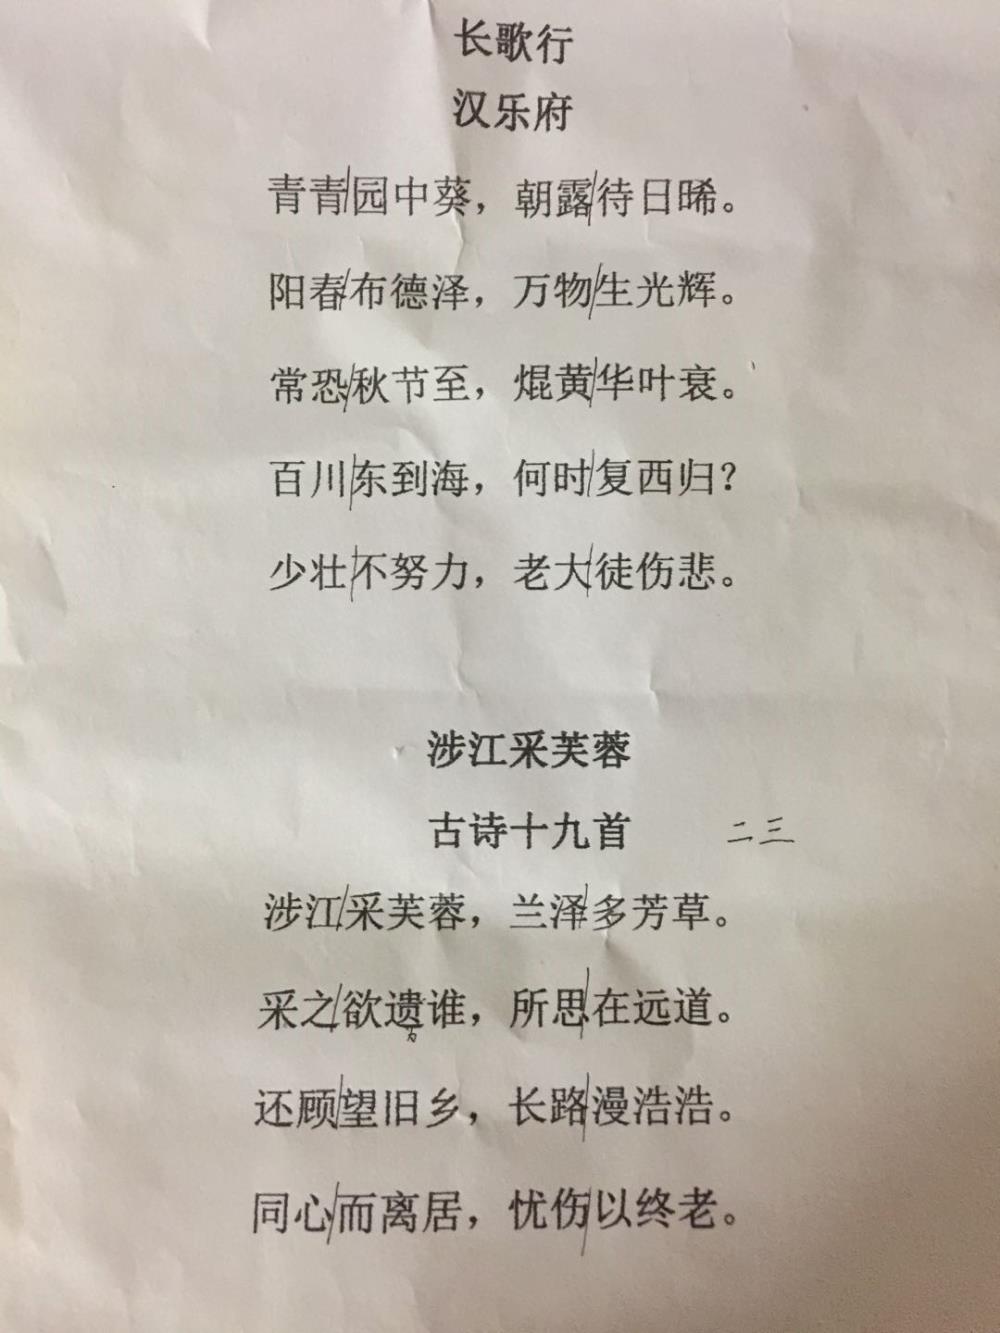 长歌行
汉乐府
青青/园中葵，朝露/待日晞。
阳春/布德泽，万物/生光辉。
常恐/秋节至，焜黄/华叶衰。
百川/东到海，何时/复西归？
少壮/不努力，老大/徒伤悲。
涉江采芙蓉
古诗十九首 二三
涉江/采芙蓉，兰泽/多芳草。
采之/欲遗谁，所思/在远道。
还顾/望旧乡，长路/漫浩浩。
同心/而离居，忧伤/以终老。